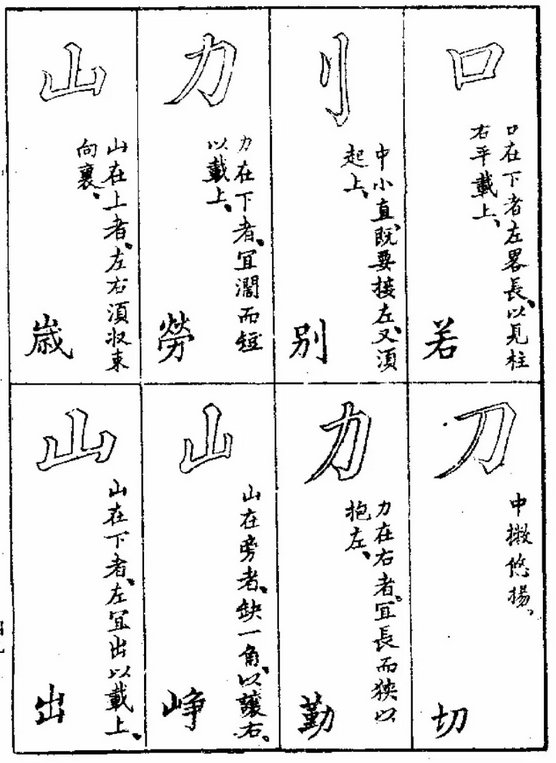 口
口在下者左畧長、以見柱
右平載上、
若
刂
中小直、既要接左、又須
起上、
別
力
力在下者、宜濶而短
以載上、
勞
山
山在上者、左右須収束
向裏、
歳
刀
中撇悠揚、
切
力
力在右者、宜長而狹以
抱左、
勤
山
山在旁者、缺一角、以讓右、
崢
山
山在下者、左宜出以載上、
出